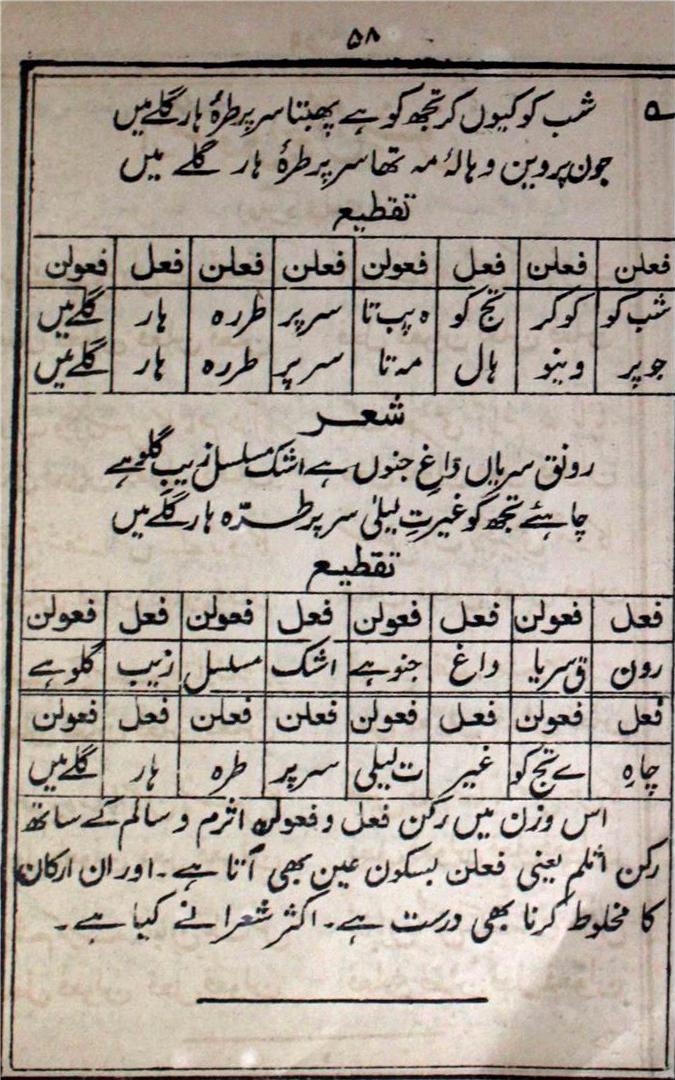 ۵۸
شب کو کیوں کر تجھ کو ہے پھبتا سر پر طرۂ ہار گلے میں
جون پروین و ہالۂ مہ تھا سر پر طرۂ ہار گلے میں
تقطیع
فعلن فعلن فعل فعولن فعلن فعلن فعل فعولن
شب کو کو کر تج کو ہ پب تا سر پر طررہ ہار گلے میں
جو پر وینو ہال مہ تا سر پر طررہ ہار گلے میں
شعر
رونق سریاں داغِ جنوں ہے اشک مسلسل زیبِ گلو ہے
چاہئے تجھ کو غیرتِ لیلیٰ سر پر طرّہ ہار گلے میں
تقطیع
فعل فعولن فعل فعولن فعل فعولن فعل فعولن
رون ق سریا داغ جنو ہے اشک مسلسل زیب گلو ہے
فعل فعولن فعل فعولن فعلن فعلن فعل فعولن
چاہِ ے تج کو غیر ت لیلی سر پر طرہ ہار گلے میں
اس وزن میں رکن فعل و فعولن اثرم و سالم کے ساتھ
رکن اثلم یعنی فعلن بسکون عین بھی آتا ہے۔ اور ان ارکان
کا مخلوط کرنا بھی درست ہے۔ اکثر شعرا نے کیا ہے۔